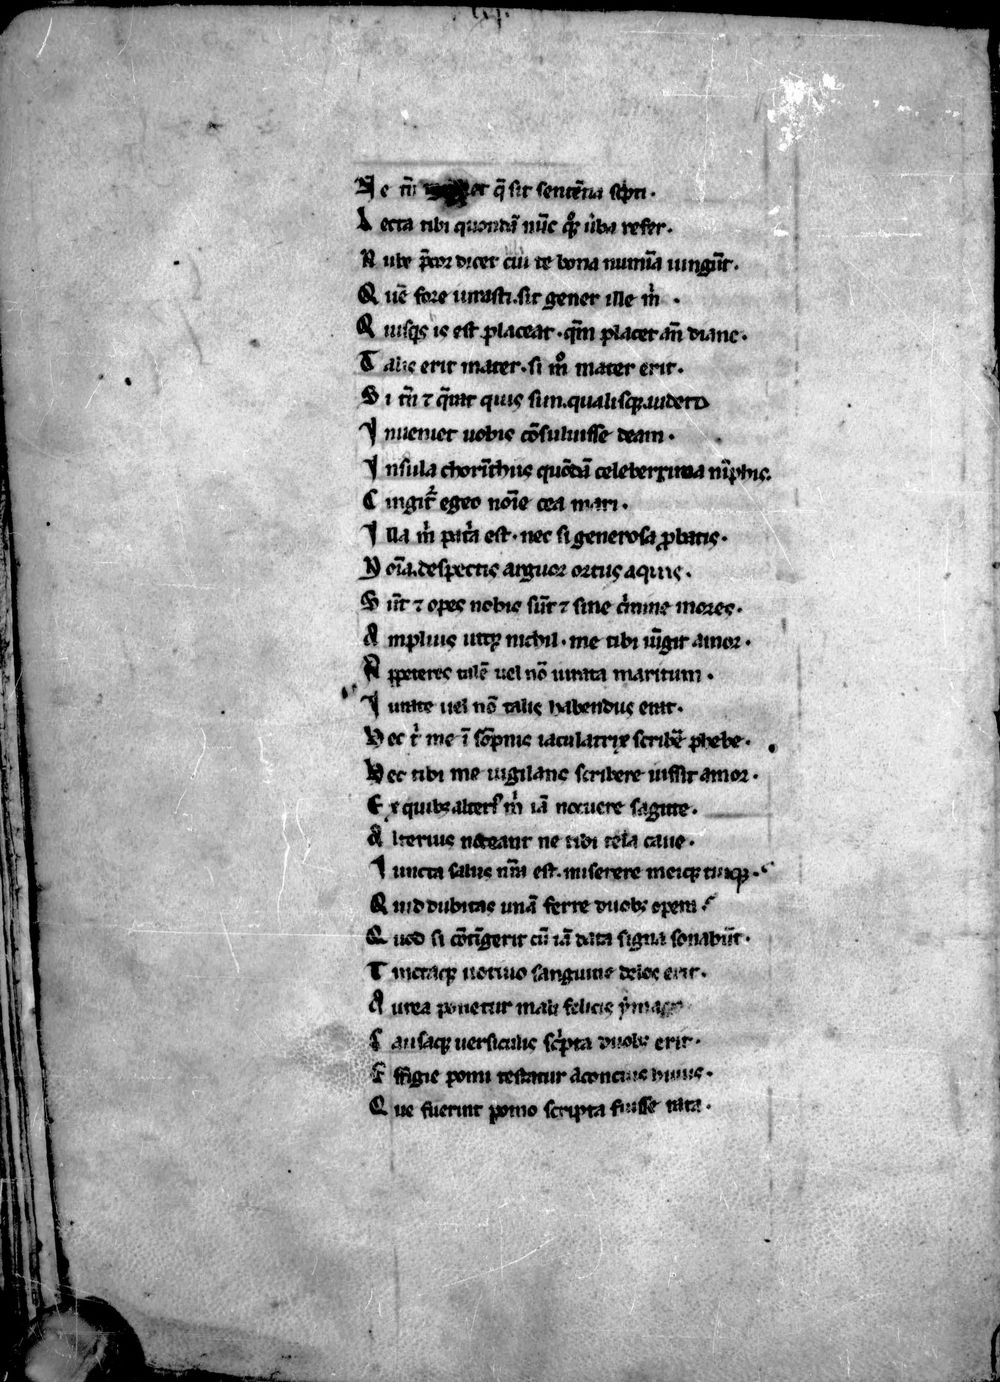 Ne tn̄ et q̄ sit sentētia sc̄pti.
Lecta tibi quondā nūc quoqꝫ ūba refer.
Nube p̄cor dicet cui te bona numīa iungūt.
Quē fore iurasti. sit gener ille m̄.
Quisqꝫ is est placeat. qm̄ placet an̄ diane.
Talis erit mater. si m° mater erit.
Si tn̄ ⁊ q̄rat quis sim. qualisqꝫ. uideto
Inueniet uobis cōsuluisse deam.
Insula chorīthiis quōdā celeberrima nīphis.
Cingit᷑ egeo noīe cea mari.
Illa m̄ pat̓a est. nec si generosa ꝓbatis.
Noīa. despectis arguor ortus aquis.
Sūt ⁊ opes nobis sūt ⁊ sine c̓mine mores.
Amplius utqꝫ nichil. me tibi iūgit amor.
Appeteres talē uel nō iurata maritum.
Iurate uel nō talis habendus erit.
Hec t̓ me ī sōpnis iaculatrix scribē phebe.
Hec tibi me uigilans scribere iussit amor.
Ex quibꝫ alteri᷒ m̄ iā nocuere sagitte.
Alterius noceant ne tibi tela caue.
Iuncta salus nr̄a est. miserere meiqꝫ tuiqꝫ.
Quid dubitas unā ferre duobꝫ opem
Quod si cōtīgerit cū iā data signa sonabūt.
Tinctaqꝫ uotiuo sanguine delos erit.
Aurea ponetur mali felicis ymago
Causaqꝫ uersiculis sc̓pta duobꝫ erit.
Effigie pomi testatur aconcius huius.
Que fuerint pomo scripta fuisse rata.